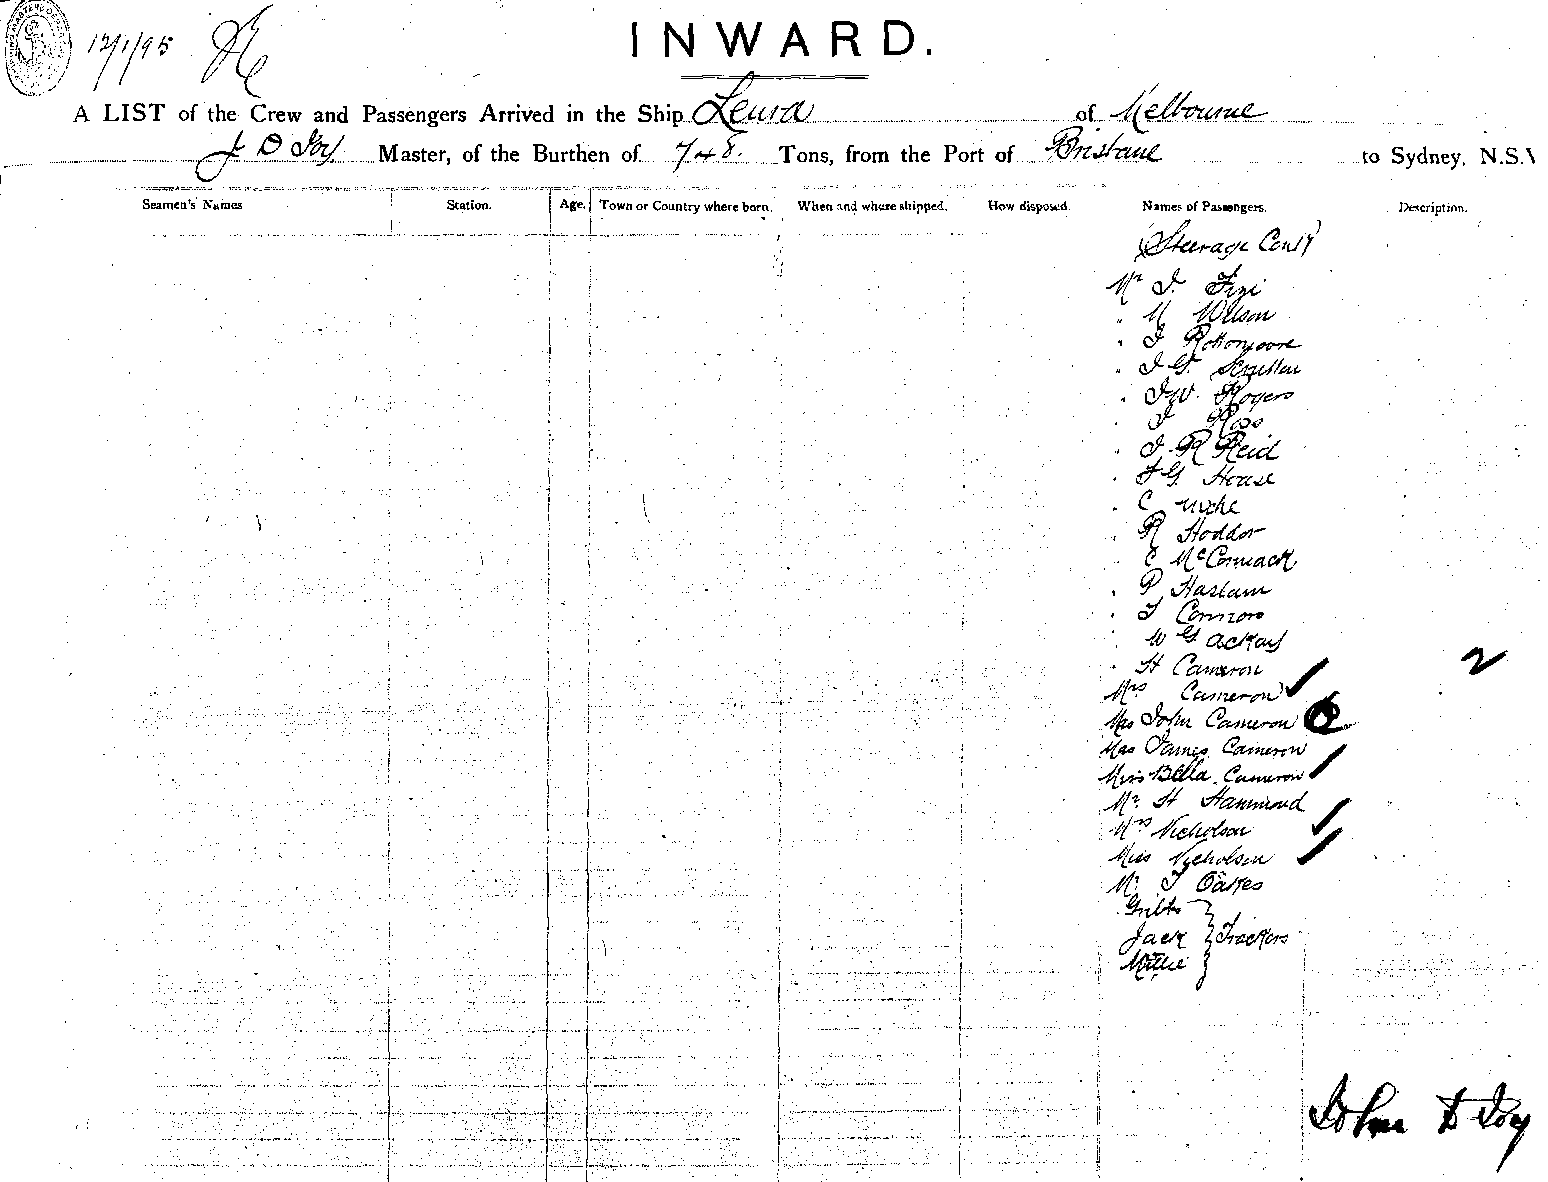 12/1/95
INWARD.
A LIST of the Crew and Passengers Arrived in the Ship Leura of Melbourne
J D Joy Master, of the Burthen of 748. Tons, from the Port of Brisbane to Sydney, N.S.
Seamen's Names Station. Age. Town or Country where born. When and where shipped. How disposed. Names of Passengers. Description.
(Steerage Cont)
Mr J.
" M Wilson
" J
" J G.
" J W. Rogers
" J Ross
" J R Reid
" F G. House
" C
" R Hoddor
C McCormack
" P Haslam
" T Connors
" W G
" H Cameron
2
Mrs Cameron
Mas John Cameron
Mas James Cameron
Miss Bella Cameron
Mr. H Hammond
Mrs Nicholson
Miss Nicholson
Mr T Oakes
Gribbs
Jack } Trackers
Millie
John D Joy